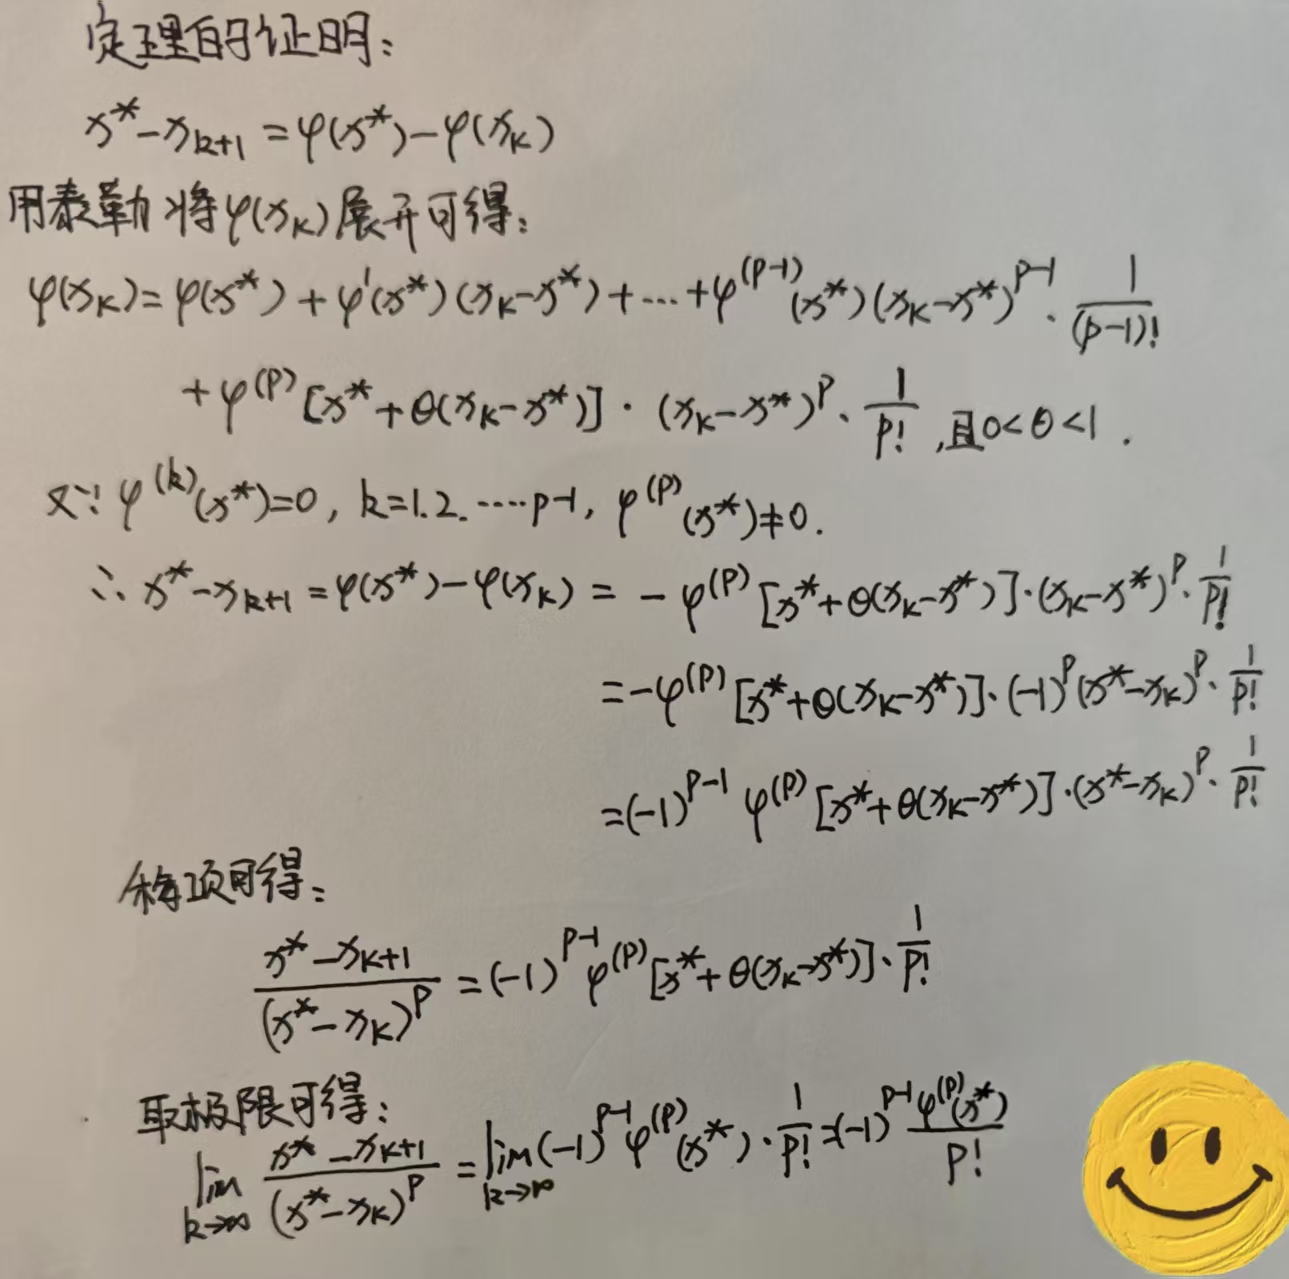 定理的证明:
x*-x_{k+1}=φ(x*)-φ(x_k)
用泰勒将φ(x_k)展开可得:
φ(x_k)=φ(x*)+φ'(x*)(x_k-x*)+...+φ^{(p-1)}(x*)(x_k-x*)^{p-1}·\frac{1}{(p-1)!}
+φ^{(p)}[x*+θ(x_k-x*)]·(x_k-x*)^p·\frac{1}{p!},且0<θ<1.
又∵φ^{(k)}(x*)=0,k=1.2.……p-1,φ^{(p)}(x*)≠0.
∴x*-x_{k+1}=φ(x*)-φ(x_k)=-φ^{(p)}[x*+θ(x_k-x*)]·(x_k-x*)^p·\frac{1}{p!}
=-φ^{(p)}[x*+θ(x_k-x*)]·(-1)^p(x*-x_k)^p·\frac{1}{p!}
=(-1)^{p-1}φ^{(p)}[x*+θ(x_k-x*)]·(x*-x_k)^p·\frac{1}{p!}
移项可得:
\frac{x*-x_{k+1}}{(x*-x_k)^p}=(-1)^{p-1}φ^{(p)}[x*+θ(x_k-x*)]·\frac{1}{p!}
取极限可得:
\lim_{k→∞}\frac{x*-x_{k+1}}{(x*-x_k)^p}=\lim_{k→∞}(-1)^{p-1}φ^{(p)}(x*)·\frac{1}{p!}=(-1)^{p-1}\frac{φ^{(p)}(x*)}{p!}